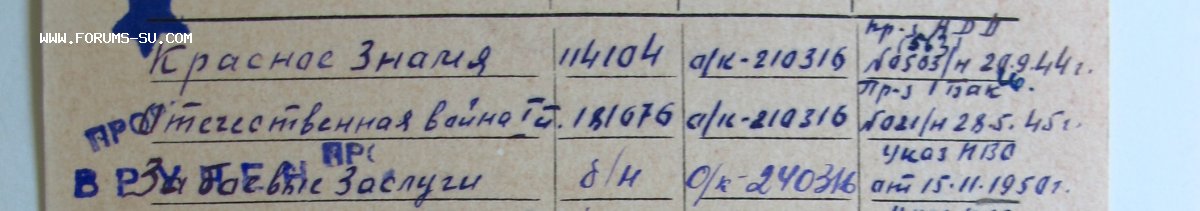 www.forums-su.com
Красное Знамя 114104 о/к-210316 №0503/н 29.9.44г.
(563)
Отечественная война I ст. 181676 о/к-210316 Пр-з 1 Бак №021/н 28.5.45г.
ПРС
За боевые Заслуги б/н О/к-240316 Указ ПВС от 15.11.1950г.
ВРУЧЕН ПРС